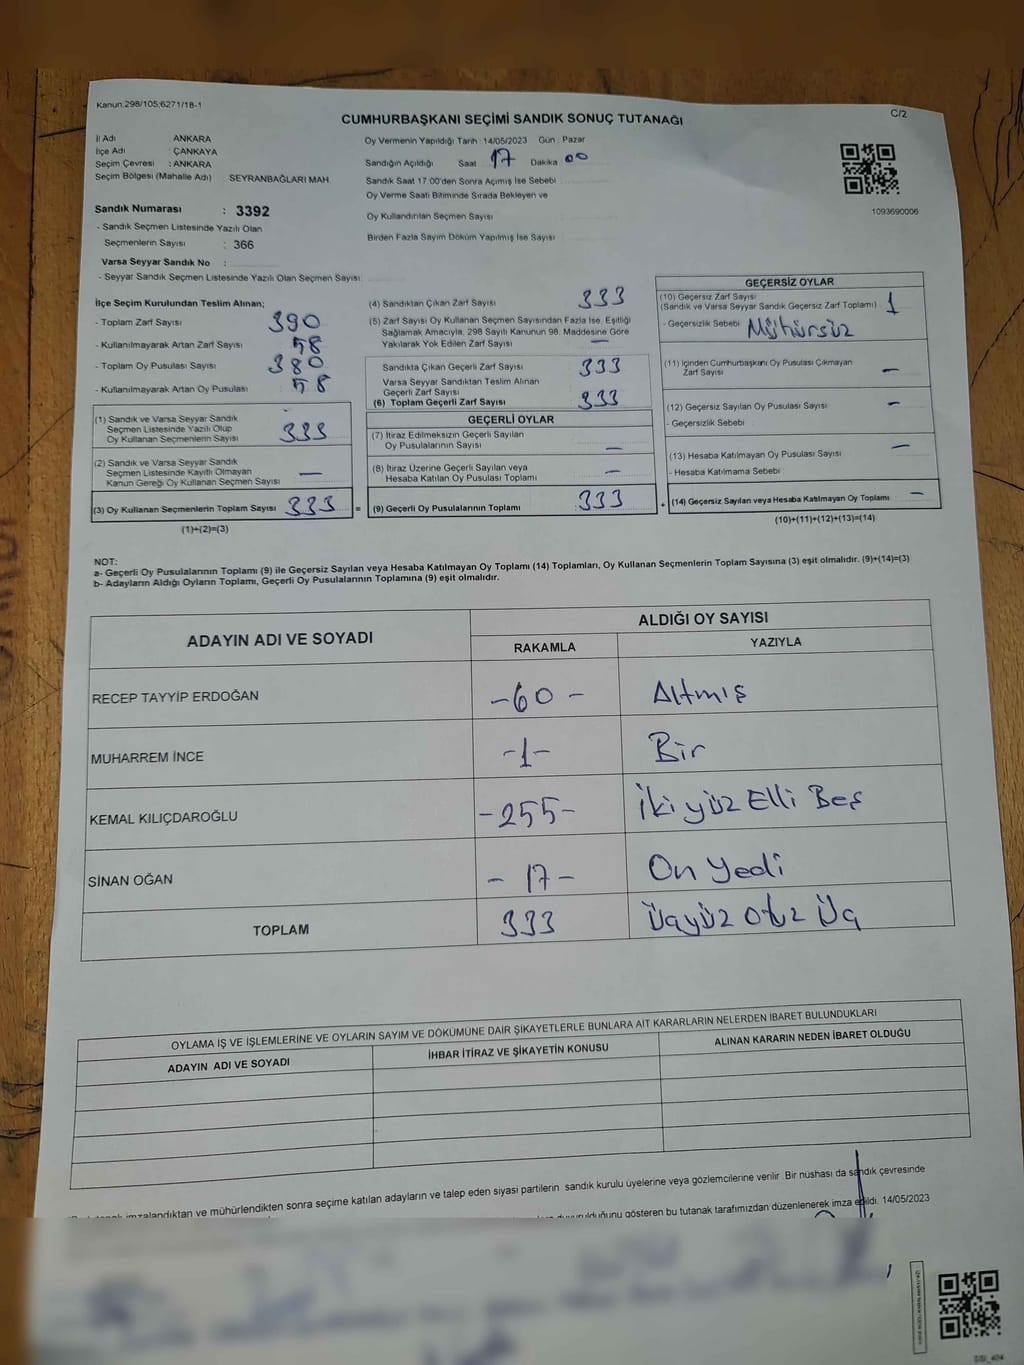 Kanun:298/105;6271/18-1
C/2
CUMHURBAŞKANI SEÇİMİ SANDIK SONUÇ TUTANAĞI
İl Adı ANKARA
İlçe Adı : ÇANKAYA
Seçim Çevresi : ANKARA
Seçim Bölgesi (Mahalle Adı) SEYRANBAĞLARI MAH.
Oy Vermenin Yapıldığı Tarih : 14/05/2023 Gün : Pazar
Sandığın Açıldığı Saat 17 Dakika 00
Sandık Saat 17:00'den Sonra Açımış İse Sebebi
Oy Verme Saati Bitiminde Sırada Bekleyen ve
Oy Kullandırılan Seçmen Sayısı
Birden Fazla Sayım Döküm Yapılmış İse Sayısı
1093690006
Sandık Numarası : 3392
- Sandık Seçmen Listesinde Yazılı Olan
Seçmenlerin Sayısı : 366
Varsa Seyyar Sandık No :
- Seyyar Sandık Seçmen Listesinde Yazılı Olan Seçmen Sayısı:
İlçe Seçim Kurulundan Teslim Alınan;
- Toplam Zarf Sayısı 390
- Kullanılmayarak Artan Zarf Sayısı 58
- Toplam Oy Pusulası Sayısı 380
- Kullanılmayarak Artan Oy Pusulası 58
(1) Sandık ve Varsa Seyyar Sandık
Seçmen Listesinde Yazılı Olup
Oy Kullanan Seçmenlerin Sayısı 333
(2) Sandık ve Varsa Seyyar Sandık
Seçmen Listesinde Kayıtlı Olmayan
Kanun Gereği Oy Kullanan Seçmen Sayısı —
(3) Oy Kullanan Seçmenlerin Toplam Sayısı 333 =
(1)+(2)=(3)
(4) Sandıktan Çıkan Zarf Sayısı 333
(5) Zarf Sayısı Oy Kullanan Seçmen Sayısından Fazla İse, Eşitliği
Sağlamak Amacıyla, 298 Sayılı Kanunun 98. Maddesine Göre
Yakılarak Yok Edilen Zarf Sayısı —
Sandıkta Çıkan Geçerli Zarf Sayısı 333
Varsa Seyyar Sandıktan Teslim Alınan
Geçerli Zarf Sayısı
(6) Toplam Geçerli Zarf Sayısı 333
GEÇERLİ OYLAR
(7) İtiraz Edilmeksizin Geçerli Sayılan
Oy Pusulalarının Sayısı —
(8) İtiraz Üzerine Geçerli Sayılan veya
Hesaba Katılan Oy Pusulası Toplamı —
(9) Geçerli Oy Pusulalarının Toplamı 333 +
GEÇERSİZ OYLAR
(10) Geçersiz Zarf Sayısı
(Sandık ve Varsa Seyyar Sandık Geçersiz Zarf Toplamı) 1
- Geçersizlik Sebebi Mühürsüz
(11) İçinden Cumhurbaşkanı Oy Pusulası Çıkmayan
Zarf Sayısı —
(12) Geçersiz Sayılan Oy Pusulası Sayısı —
- Geçersizlik Sebebi
(13) Hesaba Katılmayan Oy Pusulası Sayısı —
- Hesaba Katılmama Sebebi
(14) Geçersiz Sayılan veya Hesaba Katılmayan Oy Toplamı —
(10)+(11)+(12)+(13)=(14)
NOT:
a- Geçerli Oy Pusulalarının Toplamı (9) ile Geçersiz Sayılan veya Hesaba Katılmayan Oy Toplamı (14) Toplamları, Oy Kullanan Seçmenlerin Toplam Sayısına (3) eşit olmalıdır. (9)+(14)=(3)
b- Adayların Aldığı Oyların Toplamı, Geçerli Oy Pusulalarının Toplamına (9) eşit olmalıdır.
ADAYIN ADI VE SOYADI ALDIĞI OY SAYISI
RAKAMLA YAZIYLA
RECEP TAYYİP ERDOĞAN -60- Altmış
MUHARREM İNCE -1- Bir
KEMAL KILIÇDAROĞLU -255- İki yüz Elli Beş
SİNAN OĞAN -17- On Yedi
TOPLAM 333 Üçyüz Otuz Üç
OYLAMA İŞ VE İŞLEMLERİNE VE OYLARIN SAYIM VE DÖKÜMÜNE DAİR ŞİKAYETLERLE BUNLARA AİT KARARLARIN NELERDEN İBARET BULUNDUKLARI
ADAYIN ADI VE SOYADI İHBAR İTİRAZ VE ŞİKAYETİN KONUSU ALINAN KARARIN NEDEN İBARET OLDUĞU
imzalandıktan ve mühürlendikten sonra seçime katılan adayların ve talep eden siyasi partilerin sandık kurulu üyelerine veya gözlemcilerine verilir. Bir nüshası da sandık çevresinde
duyurulduğunu gösteren bu tutanak tarafımızdan düzenlenerek imza edildi. 14/05/2023